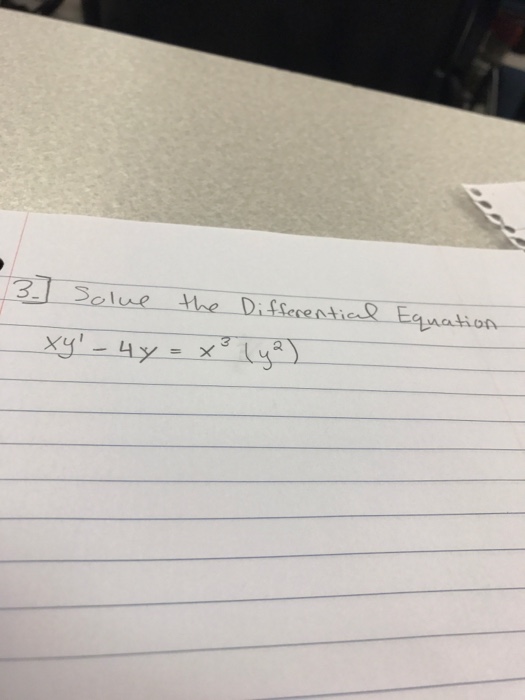 3.] Solve the Differential Equation
xy' - 4y = x³ (y²)